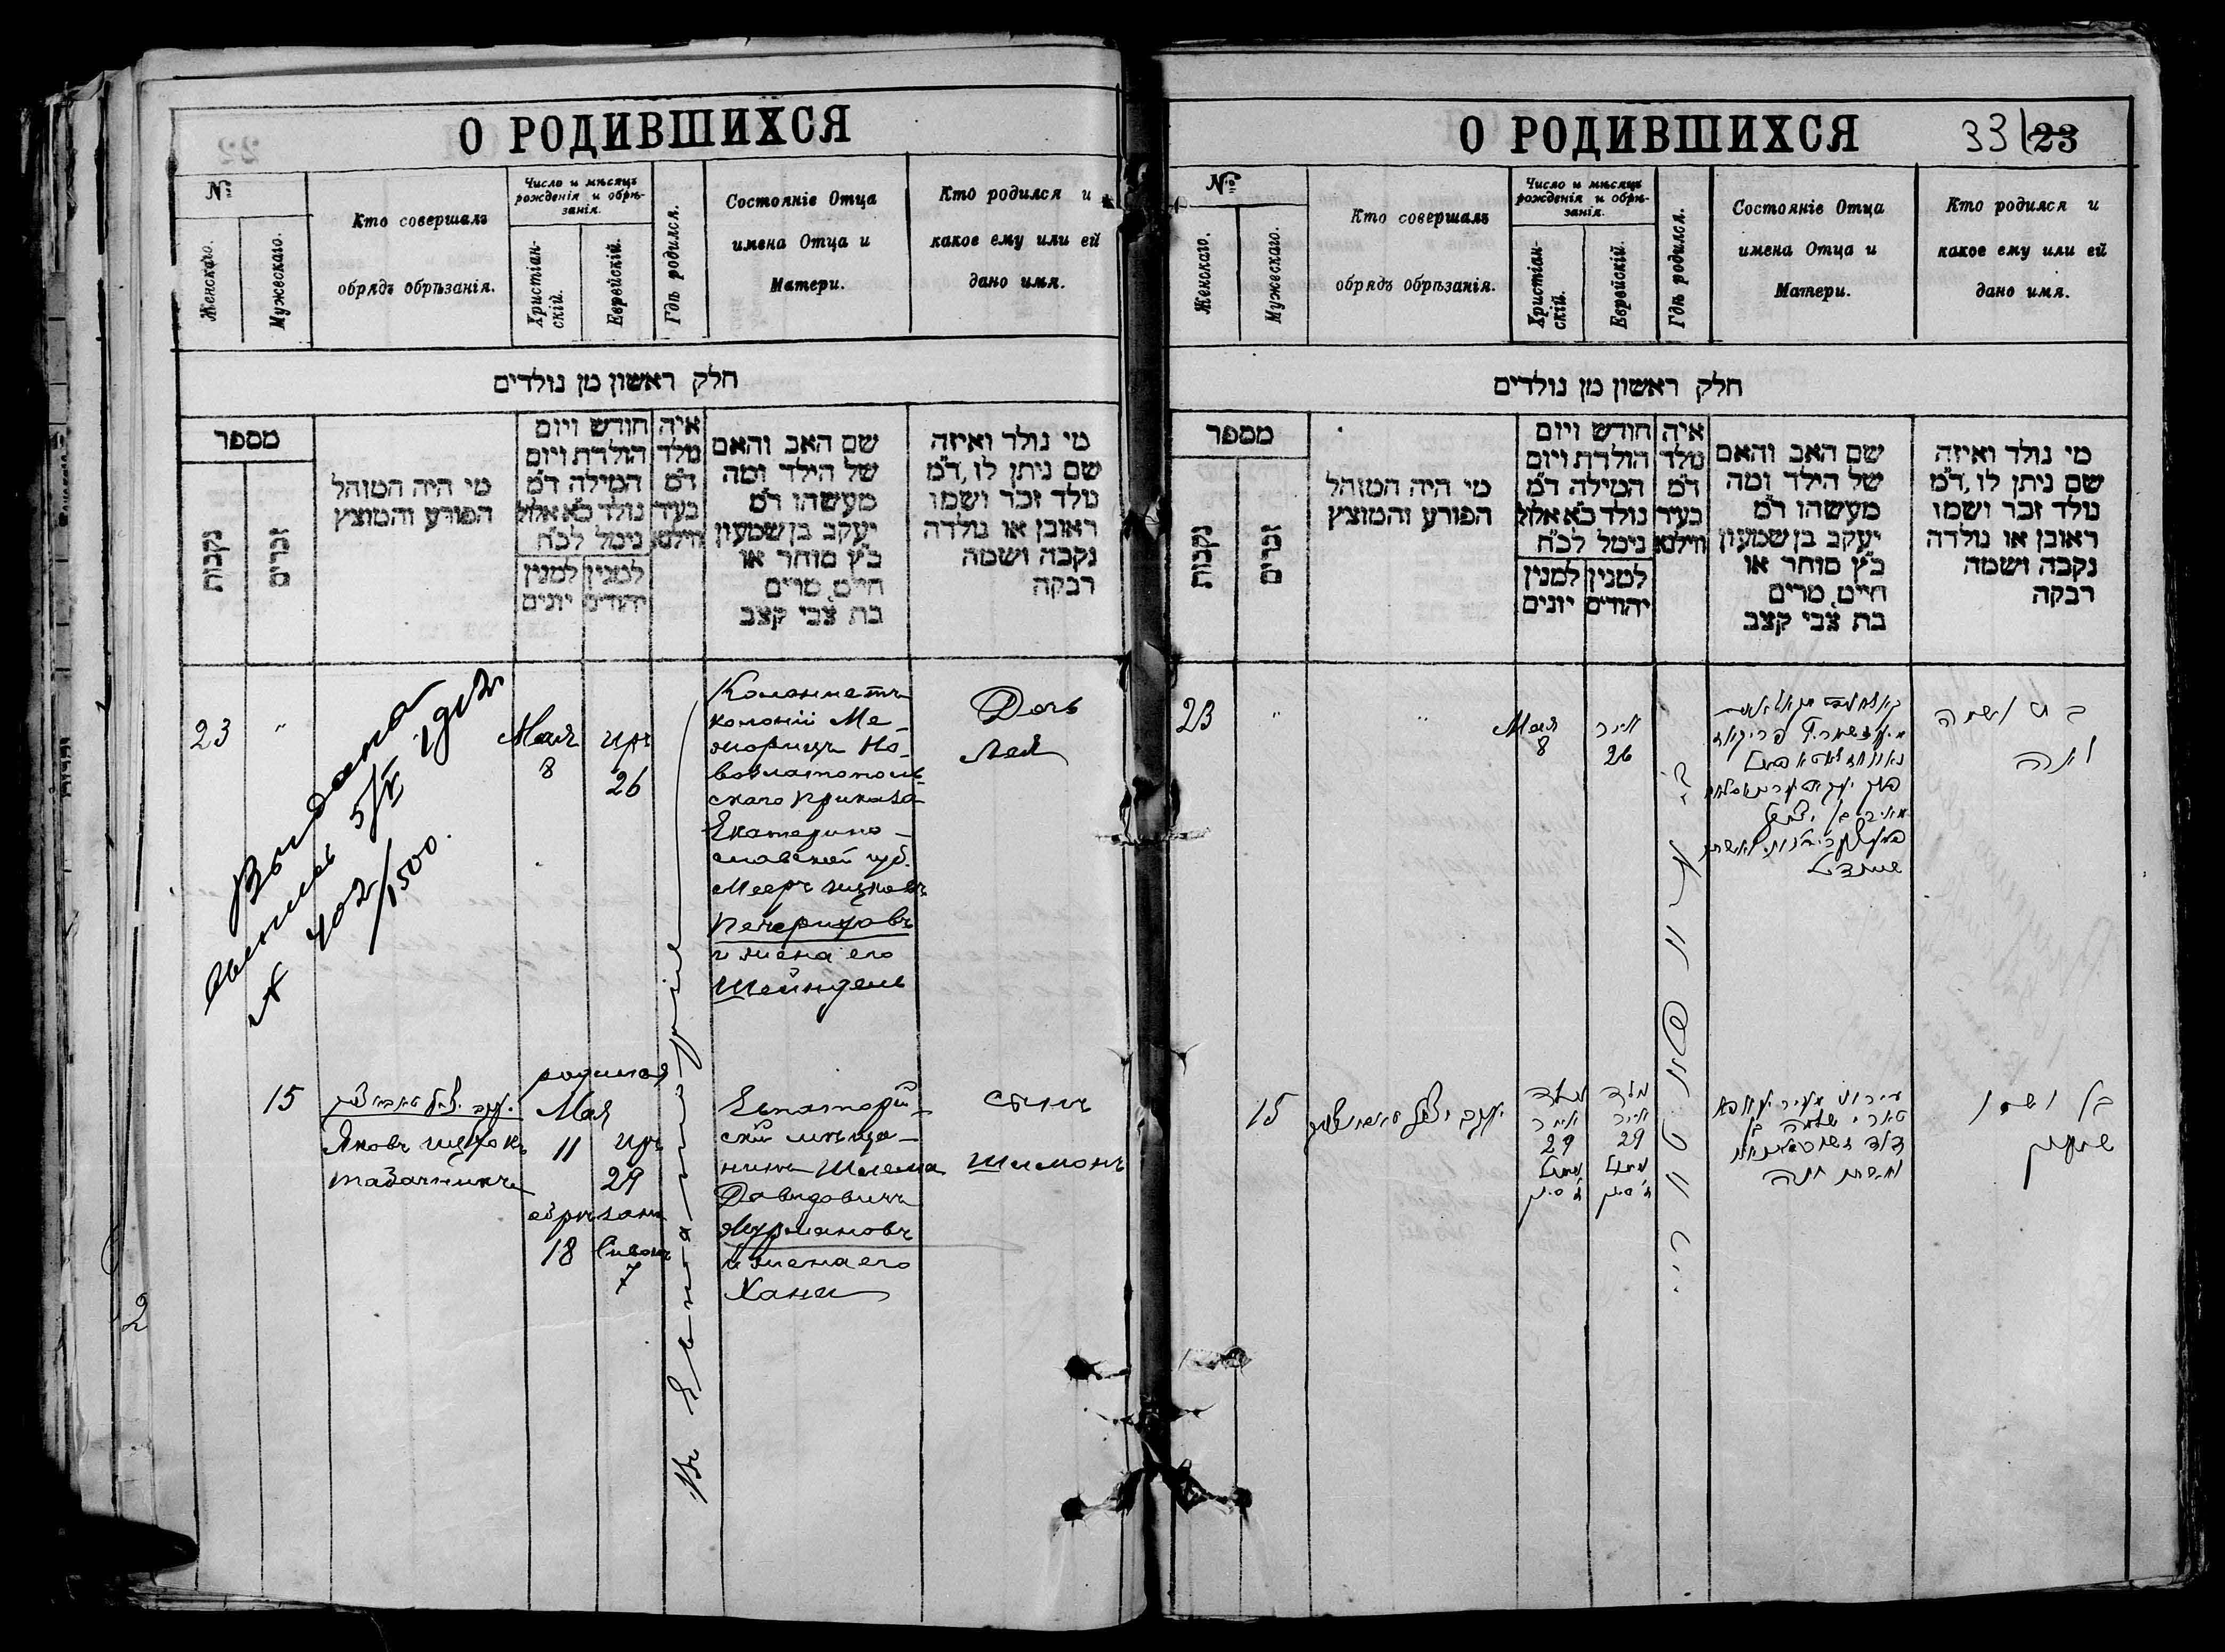 О РОДИВШИХСЯ
№
Женскаго.
Мужескаго.
Кто совершалъ
обрядъ обрѣзанія.
Число и мѣсяцъ
рожденія и обрѣ-
занія.
Христіан-
скій.
Еврейскій.
Гдѣ родился.
Состояніе Отца
имена Отца и
Матери.
Кто родился и
какое ему или ей
дано имя.
חלק ראשון מן נולדים
מספר
נקבות
זכרים
מי היה המוהל
הפורע והמוצץ
חודש ויום
הולדת ויום
המילה ד״מ
נולד כ״א אלול
נימל לכ״ח
למנין למנין
יהודים יונים
איה
נולד
ד״מ
בעיר
ווילנא
שם האב והאם
של הילד ומה
מעשהו ד״מ
יעקב בן שמעון
כ״ץ סוחר או
חיים, מרים
בת צבי קצב
מי נולד ואיזה
שם ניתן לו, ד״מ
נולד זכר ושמו
ראובן או נולדה
נקבה ושמה
רבקה
23 "
Выдана
5/V 1912
№ 402/1500.
Мая
8
Иръ
26
Колонистъ
колоніи Ме-
жиричъ Но-
возлатополь-
скаго приказа
Екатерино-
славской губ.
Мееръ Ицковъ
Печериховъ
и жена его
Шейндель
Дочь
Лея
Въ Евпаторіи
15
Яковъ Ицхокъ
Табачникъ
родился
Мая
11
Иръ
29
обрѣзанъ
18 Сивонъ
7
Евпаторій-
скій мѣща-
нинъ Шлема
Давидовичъ
Журмановъ
и жена его
Хана
сынъ
Шимонъ
2
О РОДИВШИХСЯ
33/23
№
Женскаго.
Мужескаго.
Кто совершалъ
обрядъ обрѣзанія.
Число и мѣсяцъ
рожденія и обрѣ-
занія.
Христіан-
скій.
Еврейскій.
Гдѣ родился.
Состояніе Отца
имена Отца и
Матери.
Кто родился и
какое ему или ей
дано имя.
חלק ראשון מן נולדים
מספר
נקבות
זכרים
מי היה המוהל
הפורע והמוצץ
חודש ויום
הולדת ויום
המילה ד״מ
נולד כ״א אלול
נימל לכ״ח
למנין למנין
יהודים יונים
איה
נולד
ד״מ
בעיר
ווילנא
שם האב והאם
של הילד ומה
מעשהו ד״מ
יעקב בן שמעון
כ״ץ סוחר או
חיים, מרים
בת צבי קצב
מי נולד ואיזה
שם ניתן לו, ד״מ
נולד זכר ושמו
ראובן או נולדה
נקבה ושמה
רבקה
23 " "
Мая
8
אייר
26
בת ושמה
לאה
15
נולד
אייר
29
נולד
אייר
29
שלמה בן
דוד
ואשתו חנה
בן ושמו
שמעון